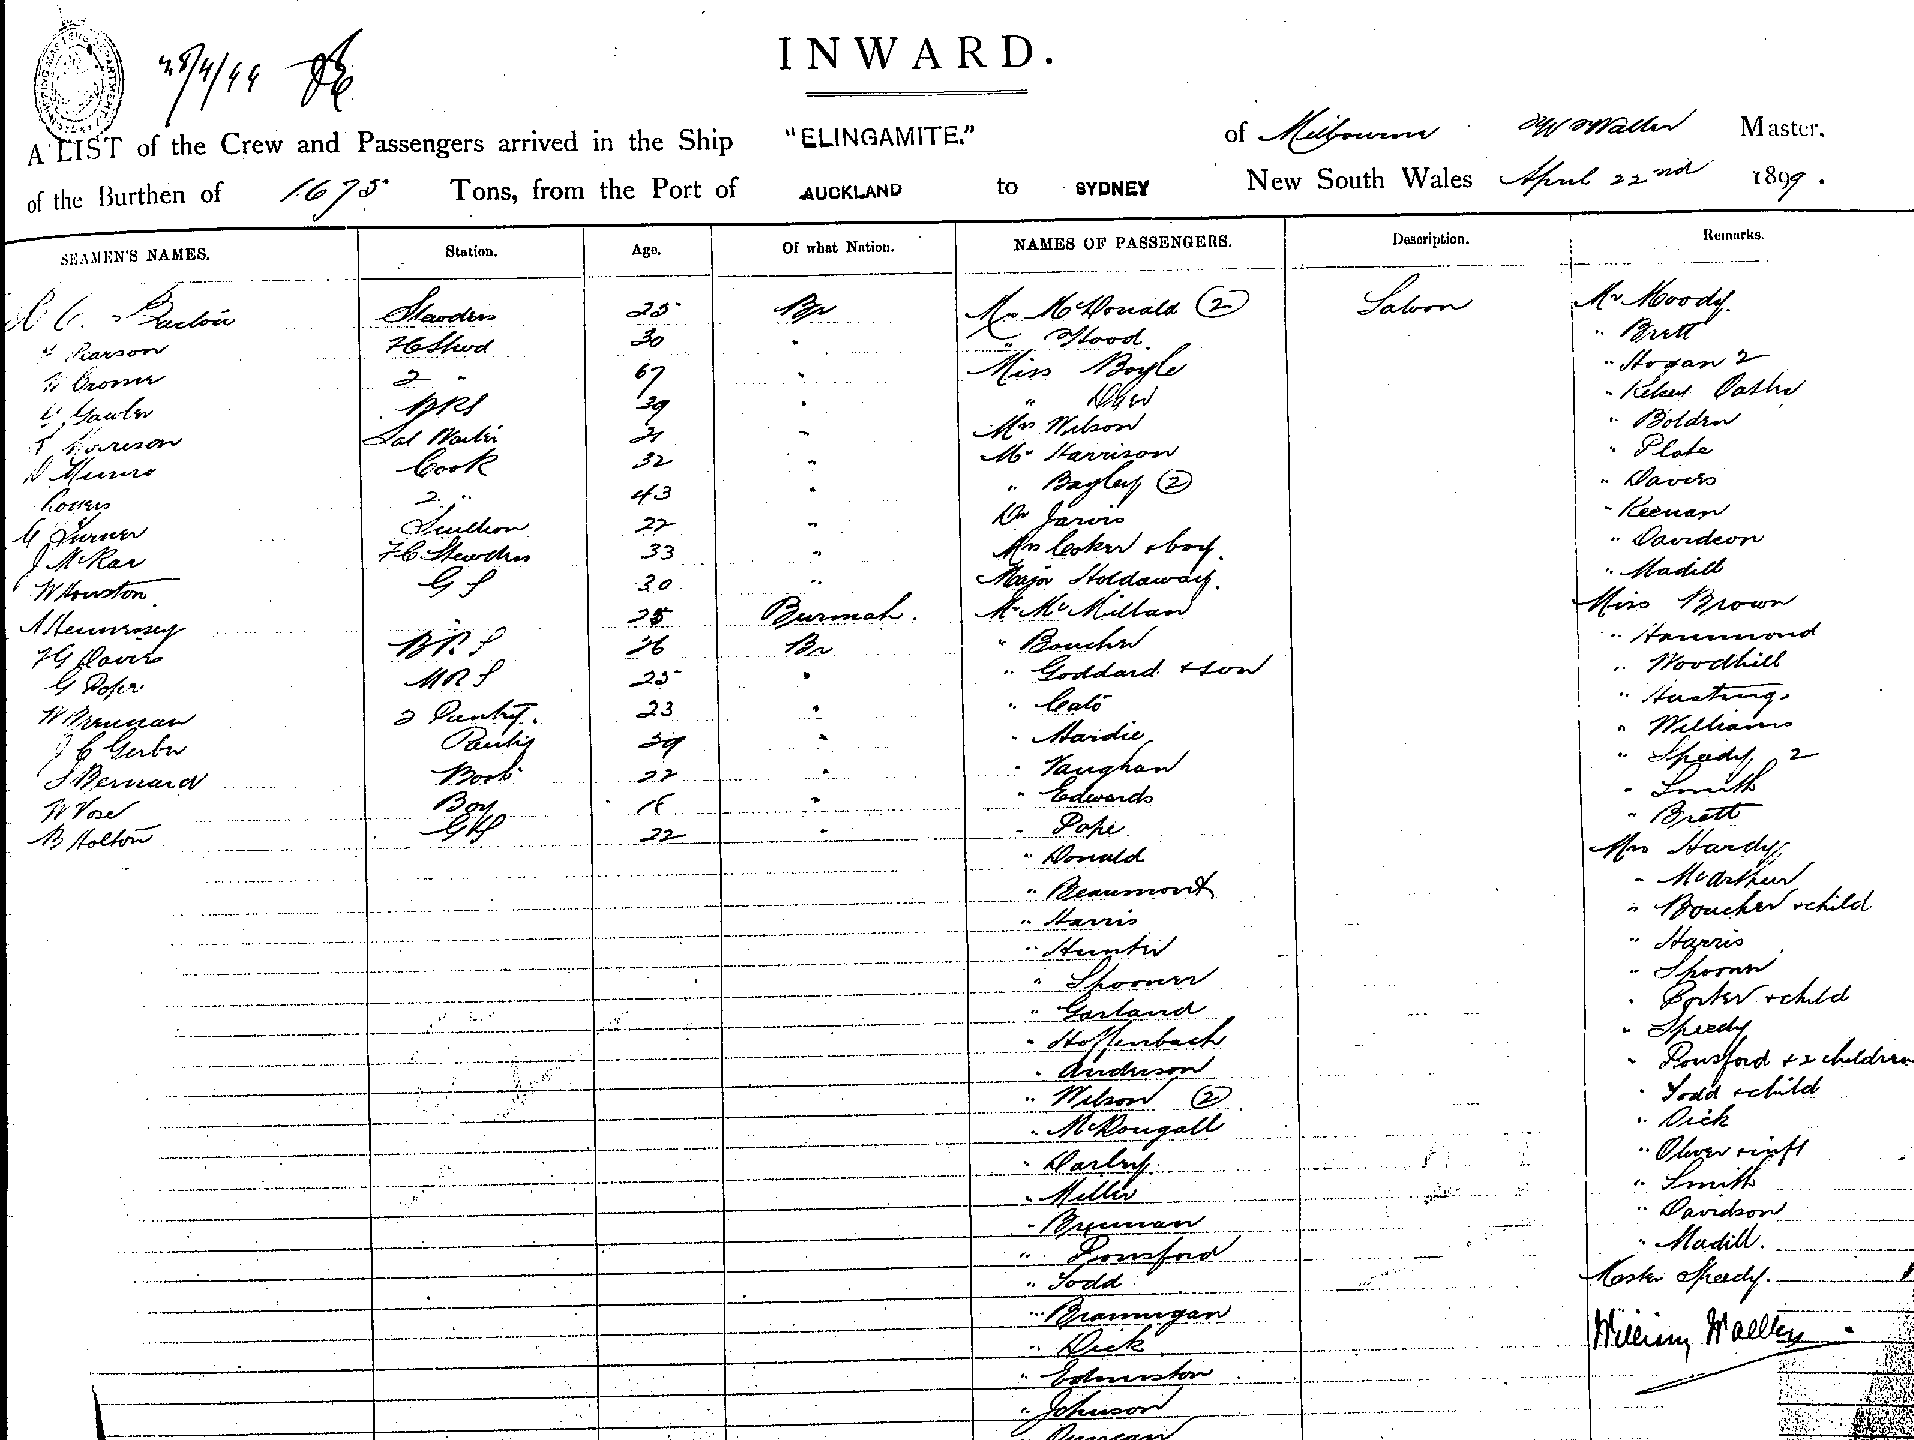 INWARD.
28/4/99
A LIST of the Crew and Passengers arrived in the Ship "ELINGAMITE." of Melbourne Master.
of the Burthen of 1675 Tons, from the Port of AUCKLAND to SYDNEY New South Wales April 22nd 1899.
SEAMEN'S NAMES. Station. Age. Of what Nation. NAMES OF PASSENGERS. Description. Remarks.
Stewdess 25 Br Mr McDonald (2) Saloon Mr Moody
Pearson 30 " " Hood " Brett
2 " 67 " Miss Boyle " Hogan 2
BRS 39 " "
Harrison 21 " Mrs Wilson
D Munro Cook 32 " Mr Harrison " Plate
2 " 43 " " Bagley (2) " Davies
G Turner Scullion 22 " Dr Jarvis " Keenan
J McRae FC Stewdess 33 " Mrs Coker & boy. " Davidson
W Houston G S 30 " Major Holdaway. " Madill
A Hennessy 25 Burmah. Mr McMillan Miss Brown
HG Davis BRS 26 Br " Boucher " Hammond
G Pope MRS 25 " " Goddard & son " Woodhill
W Brennan 2 Pantry. 23 " " Cato " Hastings
J C Gerber Pantry 39 " " Hardie " Williams
S Bernard Boots 22 " " Vaughan " Speedy 2
W Vose Boy 16 " " Edwards " Smith
B Holton GS 22 " " Pope " Brett
" Donald Mrs Hardy
" Beaumont " McArthur
" Harris " Boucher & child
" Hunter " Harris
" Spooner " Spooner
" Garland " Porter & child
" Hoffenbach " Speedy
" Anderson " Ponsford & 2 children
" Wilson (2) " Todd & child
" McDougall " Dick
" Darley " Oliver & inft
" Miller " Smith
" Brennan " Davidson
" Ponsford " Madill.
" Todd Master Speedy.
" Brannigan William Waller
" Dick
" Edmiston
" Johnson
" Duncan